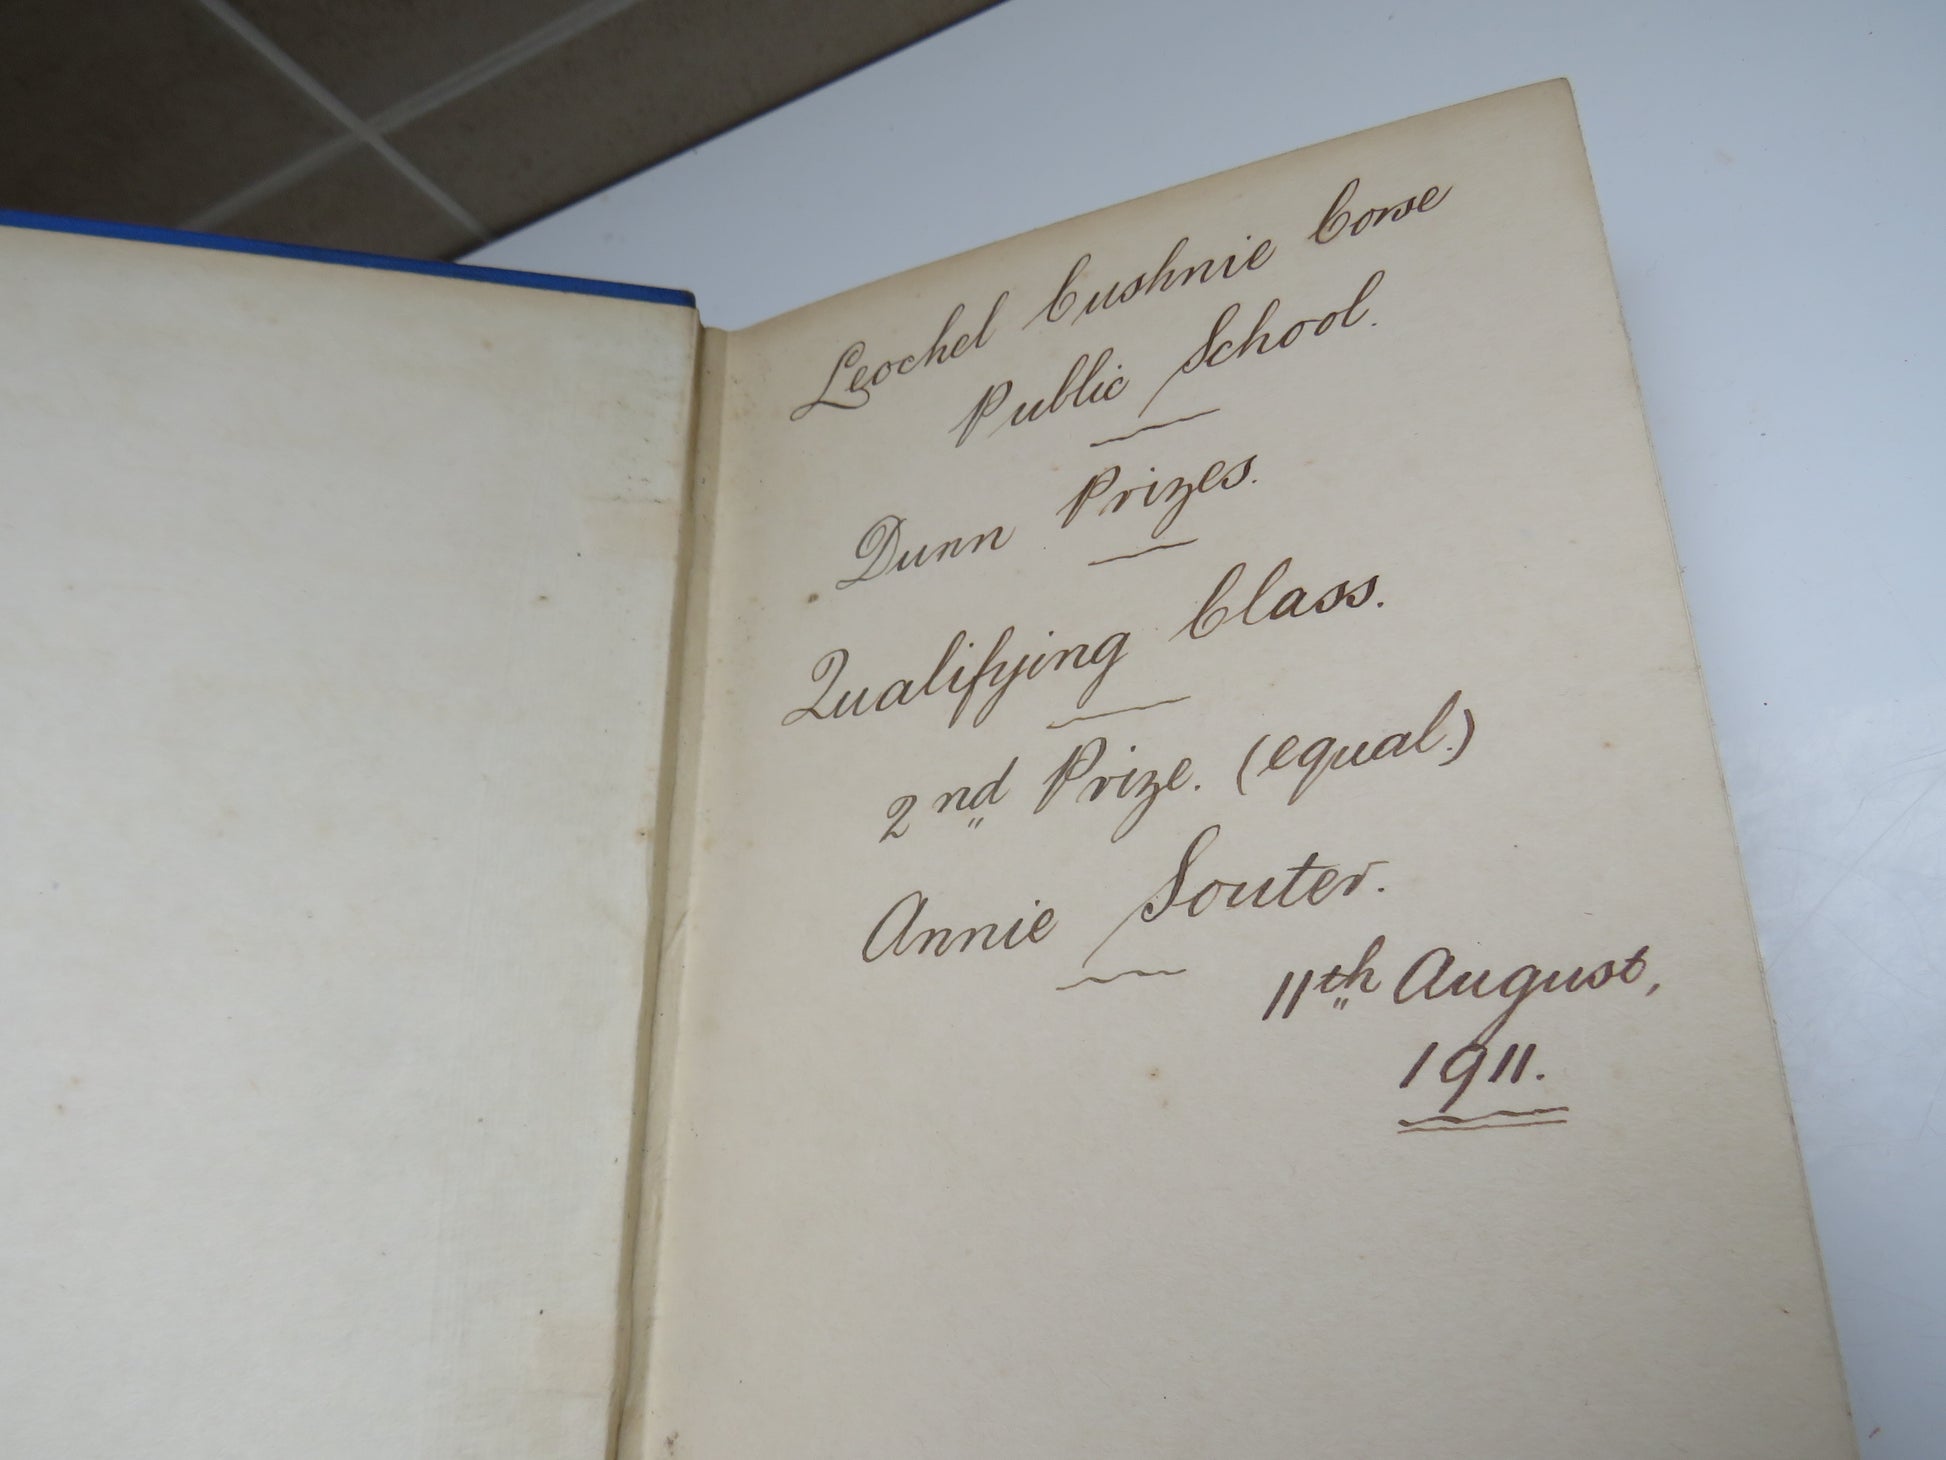 Leochel Cushnie Corse
Public School.
Dunn Prizes.
Qualifying Class.
2nd Prize. (equal.)
Annie Souter.
11th August,
1911.